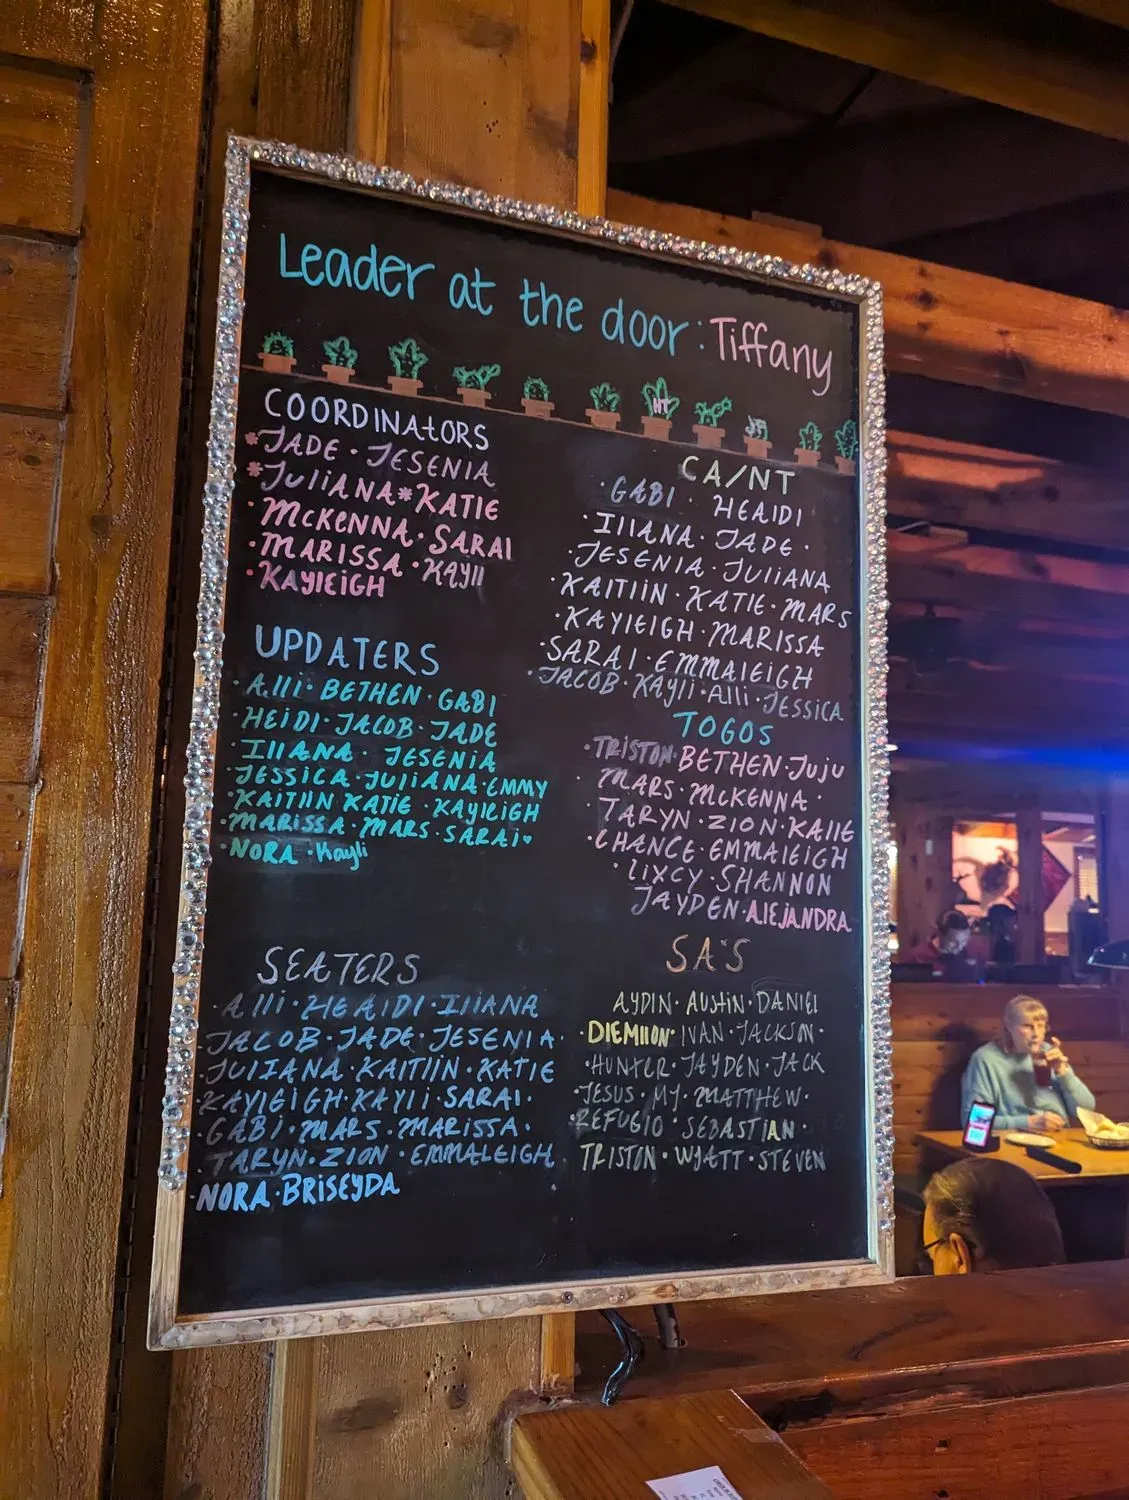 Leader at the door: Tiffany
COORDINAtORS
*JADE · JESENIA
*JuliANA*KATIE
·McKENNA·SARAI
·MARISSA·KAYli
·KAYlEiGH
UPDATERS
·Alli·BETHEN·GABI
·HEiDI·JACOB·JADE
·IllANA· JESENiA
·JESSICA·JUliANA·EMMY
·KAITlIN KATIE·KAYlEIGH
·MARiSSA·MARS·SARAi♥
·NORA·Kayli
SEATERS
·Alli·HEAIDI·IllANA
·JACOB·JADE·JESENIA·
·JUlIANA·KAITlIN·KATIE
·KAYlEIGH·KAYli·SARAI·
·GABI·MARS·MARISSA·
·TARYN·ZION·EMMALEIGH
·NORA·BRISEYDA
NT
CA/NT
·GABI· HEAIDI
·IllANA·JADE·
·JESENIA·JUliANA
·KAITlIN·KATIE·MARS
·KAYlEIGH·MARISSA
·SARAI·EMMAlEIGH
·JACOB·KAYli·Alli·JESSICA
TOGOS
·TRISTON·BETHEN·JuJu
·MARS·McKENNA·
·TARYN·ZION·KAllE
·CHANCE·EMMAlEIGH
·lIXCY·SHANNON
JAYDEN·AlEJANDRA
SA'S
AYDIN·AUSTIN·DANIEl
·DIEMIION·IVAN·JACKSON·
·HUNTER·JAYDEN·JACK
·JESUS·MJ·MATTHEW·
·REFUGIO·SEBASTIAN·
TRISTON·WYATT·STEVEN